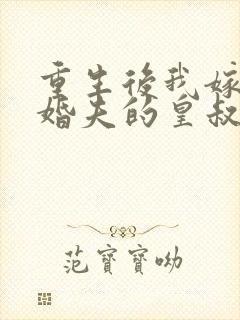 重生後我嫁
婚夫的皇叔
范寶寶呦